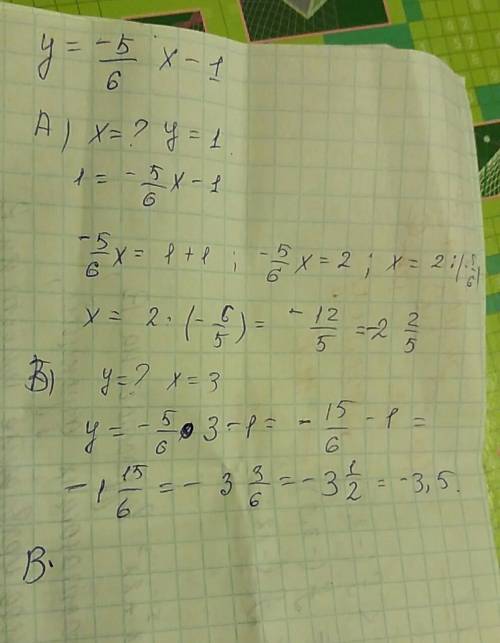 y = -5/6 x - 1
A) x = ? y = 1
1 = - 5/6 x - 1
-5/6 x = 1 + 1 ; -5/6 x = 2 ; x = 2 : (-5/6)
x = 2 · (- 6/5) = - 12/5 = -2 2/5
Б) y = ? x = 3
y = - 5/6 · 3 - 1 = - 15/6 - 1 =
- 1 15/6 = - 3 3/6 = - 3 1/2 = - 3,5.
В.